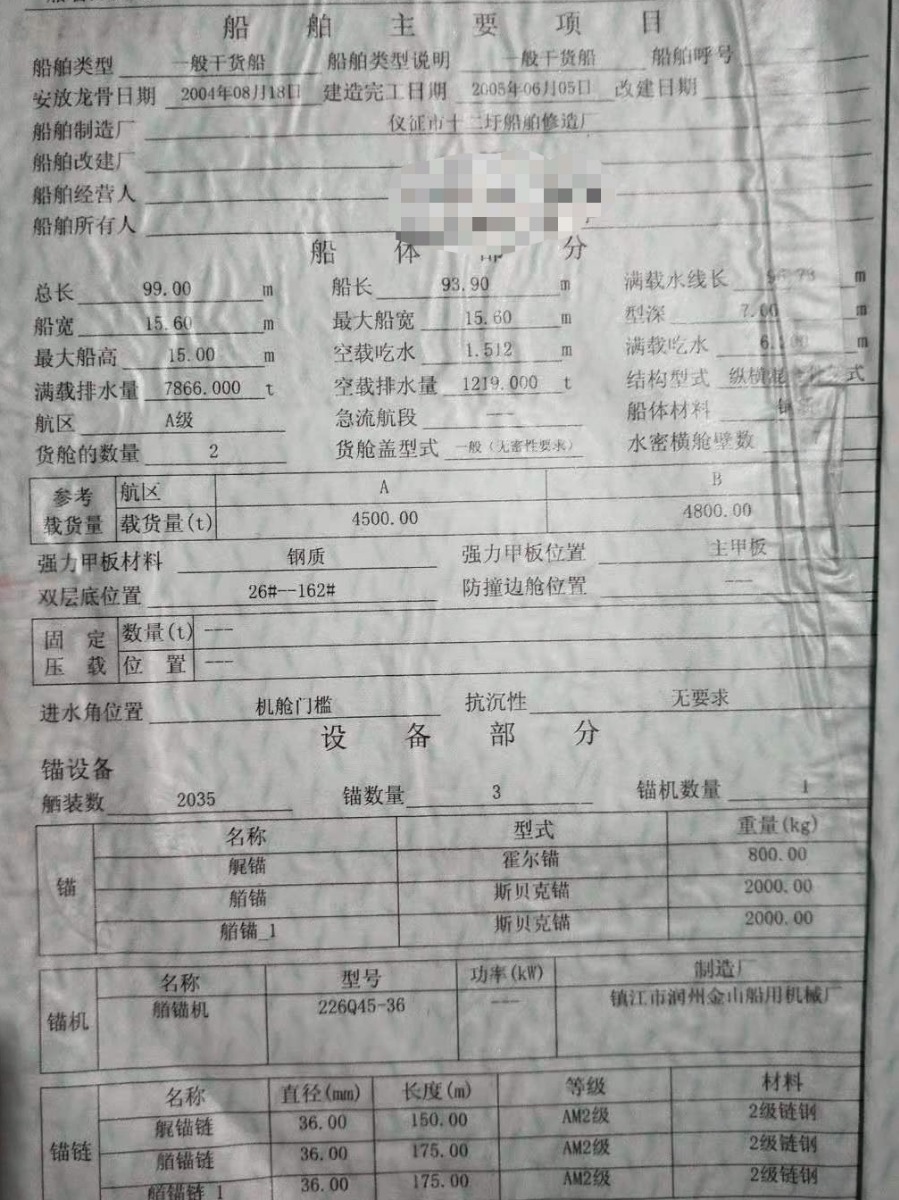 船舶主要项目
船舶类型 一般干货船 船舶类型说明 一般干货船 船舶呼号
安放龙骨日期 2004年08月18日 建造完工日期 2005年06月05日 改建日期
船舶制造厂 仪征市十二圩船舶修造厂
船舶改建厂
船舶经营人
船舶所有人
船体部分
总长 99.00 m 船长 93.90 m 满载水线长 m
船宽 15.60 m 最大船宽 15.60 m 型深 7.00 m
最大船高 15.00 m 空载吃水 1.512 m 满载吃水 m
满载排水量 7866.000 t 空载排水量 1219.000 t 结构型式 纵横混 式
航区 A级 急流航段 --- 船体材料
货舱的数量 2 货舱盖型式 一般(无密性要求) 水密横舱壁数
参考载货量 航区 A B
载货量(t) 4500.00 4800.00
强力甲板材料 钢质 强力甲板位置 主甲板
双层底位置 26#--162# 防撞边舱位置 ---
固定压载 数量(t) ---
位置 ---
进水角位置 机舱门槛 抗沉性 无要求
设备部分
锚设备
舾装数 2035 锚数量 3 锚机数量 1
锚 名称 型式 重量(kg)
艉锚 霍尔锚 800.00
艏锚 斯贝克锚 2000.00
艏锚_1 斯贝克锚 2000.00
锚机 名称 型号 功率(kW) 制造厂
艏锚机 226Q45-36 --- 镇江市润州金山船用机械厂
锚链 名称 直径(mm) 长度(m) 等级 材料
艉锚链 36.00 150.00 AM2级 2级链钢
艏锚链 36.00 175.00 AM2级 2级链钢
艏锚链_1 36.00 175.00 AM2级 2级链钢